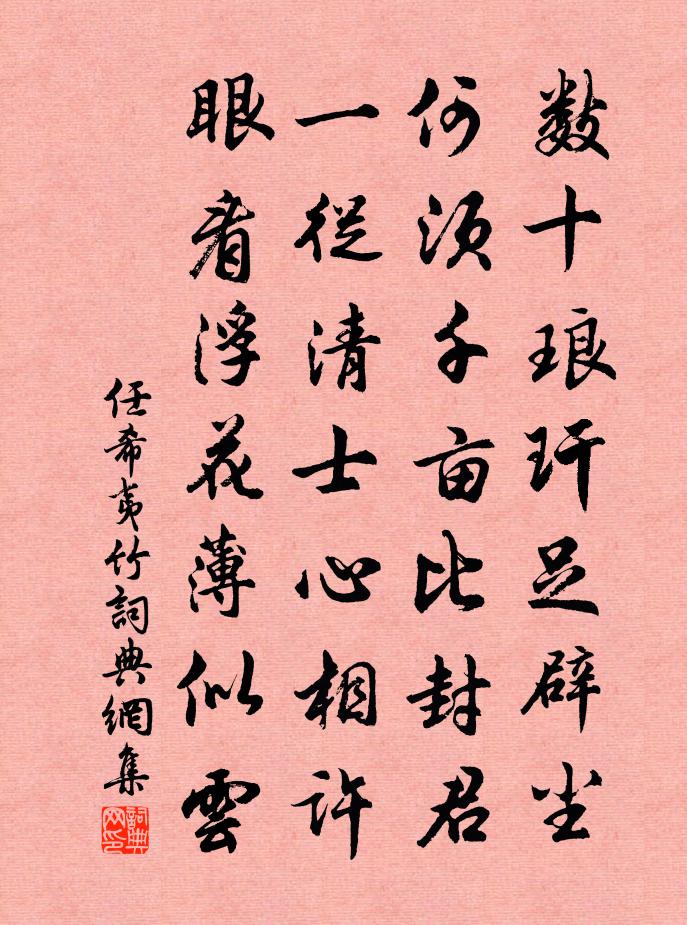 数十琅玕足辟尘
何须千亩比封君
一從清士心相許
眼看浮花薄似雲
任希夷竹詞典網集
詞典网印